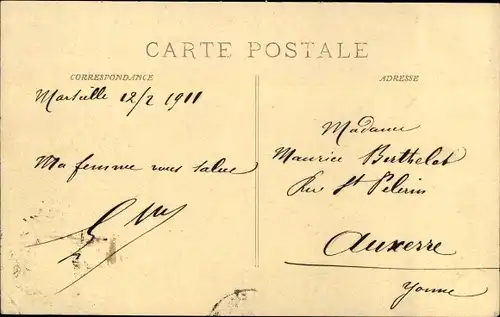 CARTE POSTALE
CORRESPONDANCE
Marseille 12/2 1911
Ma femme vous salue
ADRESSE
Madame
Maurice Berthelot
Rue St Pelerin
Auxerre
Yonne